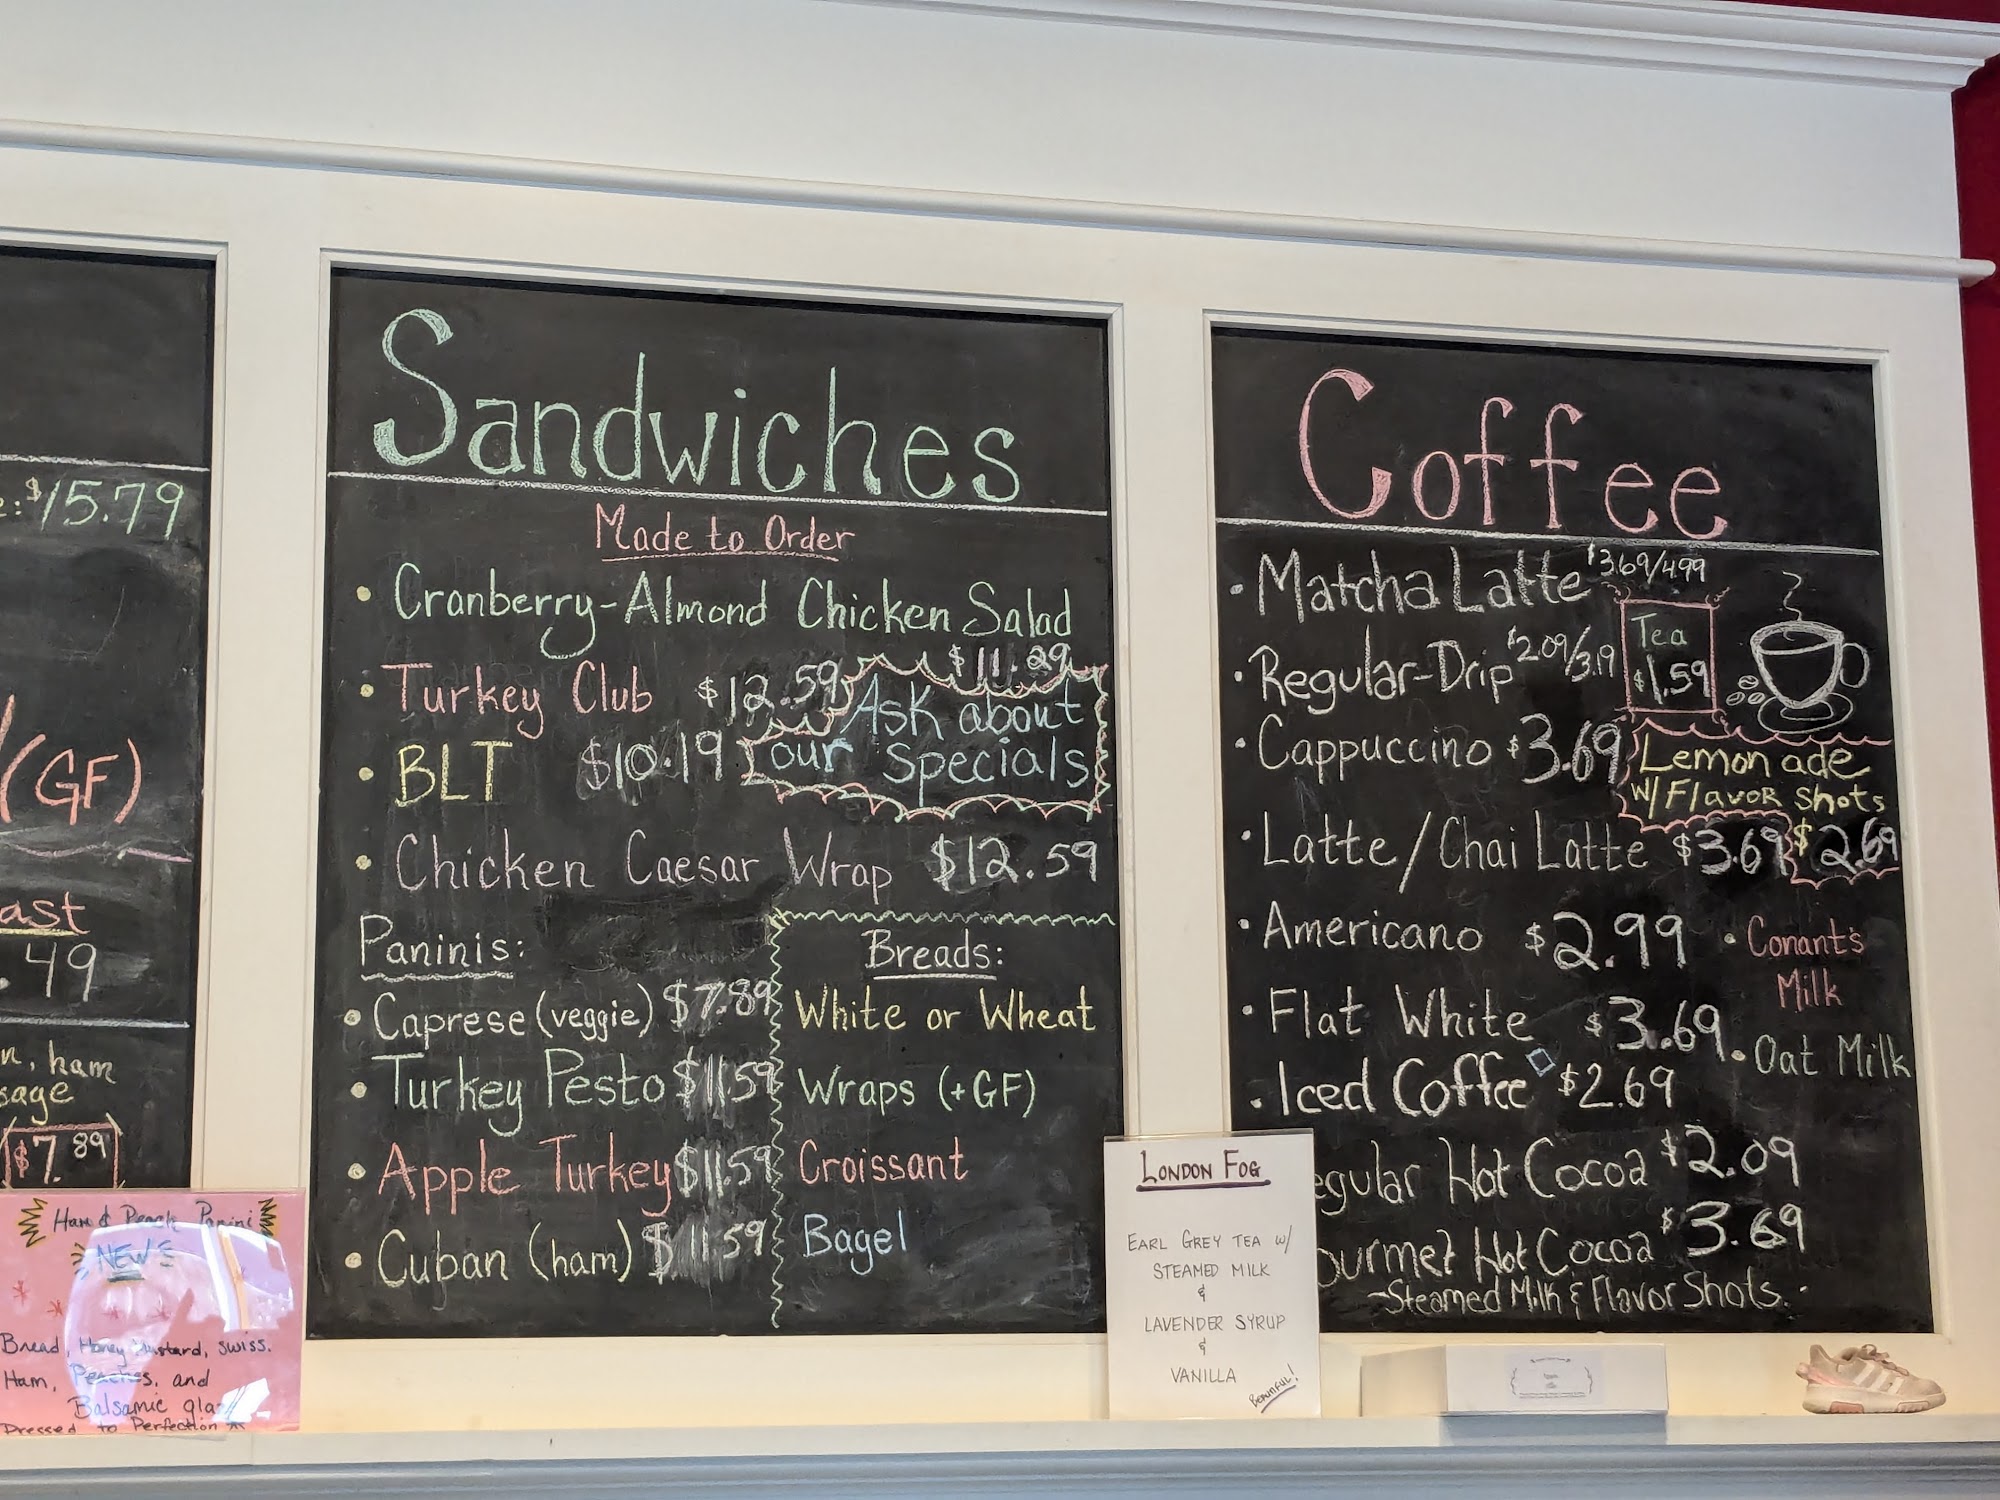 $15.79
(GF)
ast
.49
n, ham
sage
$7.89
Ham & Peach Panini
NEW
Bread, Honey Mustard, Swiss.
Ham, Peaches, and
Balsamic
Pressed to Perfection
Sandwiches
Made to Order
• Cranberry-Almond Chicken Salad
$11.29
• Turkey Club $12.59
• BLT $10.19
Ask about
our specials
• Chicken Caesar Wrap $12.59
Paninis:
• Caprese (veggie) $7.89
• Turkey Pesto $11.59
• Apple Turkey $11.59
• Cuban (ham) $11.59
Breads:
White or Wheat
Wraps (+GF)
Croissant
Bagel
Coffee
• Matcha Latte $3.69/4.99
• Regular-Drip $2.09/3.19
Tea
$1.59
• Cappuccino $3.69
Lemonade
w/ Flavor Shots
$2.69
• Latte/Chai Latte $3.69
• Americano $2.99
• Conant's
Milk
• Flat White $3.69
• Oat Milk
• Iced Coffee $2.69
egular Hot Cocoa $2.09
ourmet Hot Cocoa $3.69
-Steamed Milk & Flavor Shots.
LONDON FOG
EARL GREY TEA W/
STEAMED MILK
&
LAVENDER SYRUP
&
VANILLA
BEAUTIFUL!